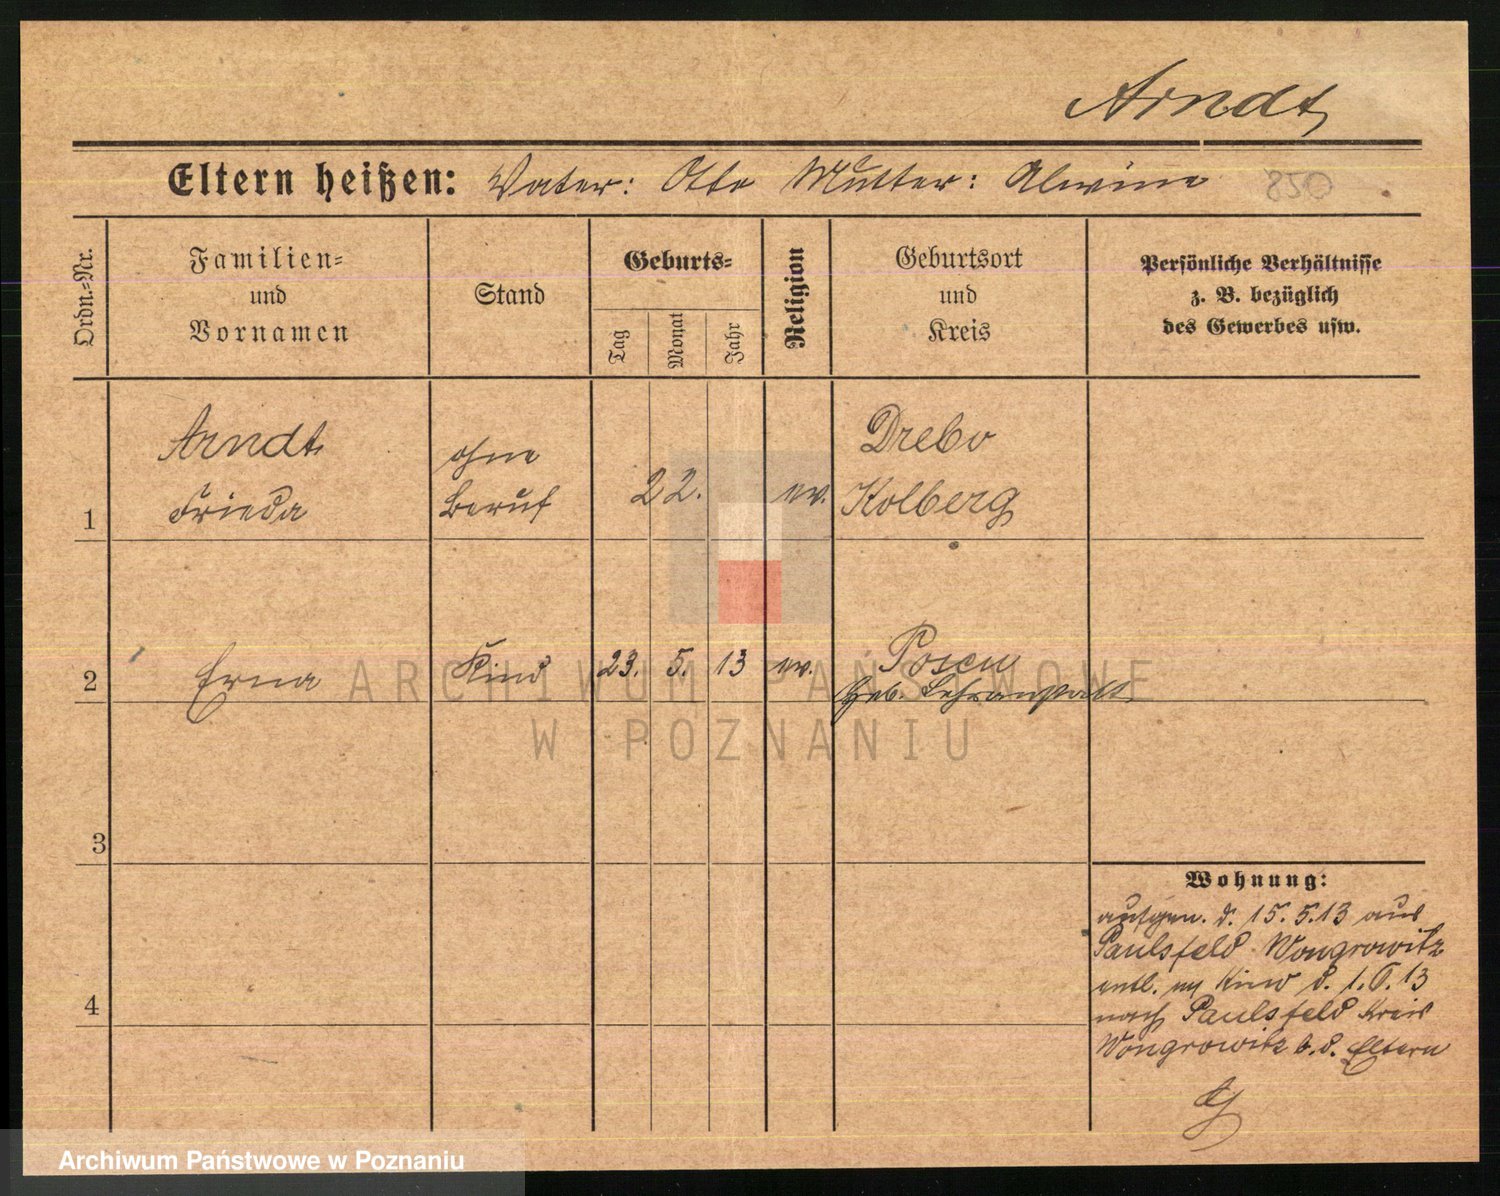 Arndt
Eltern heißen: Vater: Otto Mutter: Alwine 850
Ordn.-Nr.
Familien-
und
Vornamen
Stand
Geburts-
Tag
Monat
Jahr
Religion
Geburtsort
und
Kreis
Persönliche Verhältnisse
z. B. bezüglich
des Gewerbes usw.
1
Arndt
Frieda
ohne
Beruf
22.
ev.
Drebo
Kolberg
2
Erna
Kind
23. 5. 13
ev.
Posen
Heb. Lehranstalt
3
4
Wohnung:
aufgen. d. 15. 5. 13 aus
Paulsfeld Wongrowitz
entl. m Kind d. 1. 6. 13
nach Paulsfeld Kreis
Wongrowitz b. d. Eltern
ARCHIWUM PAŃSTWOWE
W POZNANIU
Archiwum Państwowe w Poznaniu